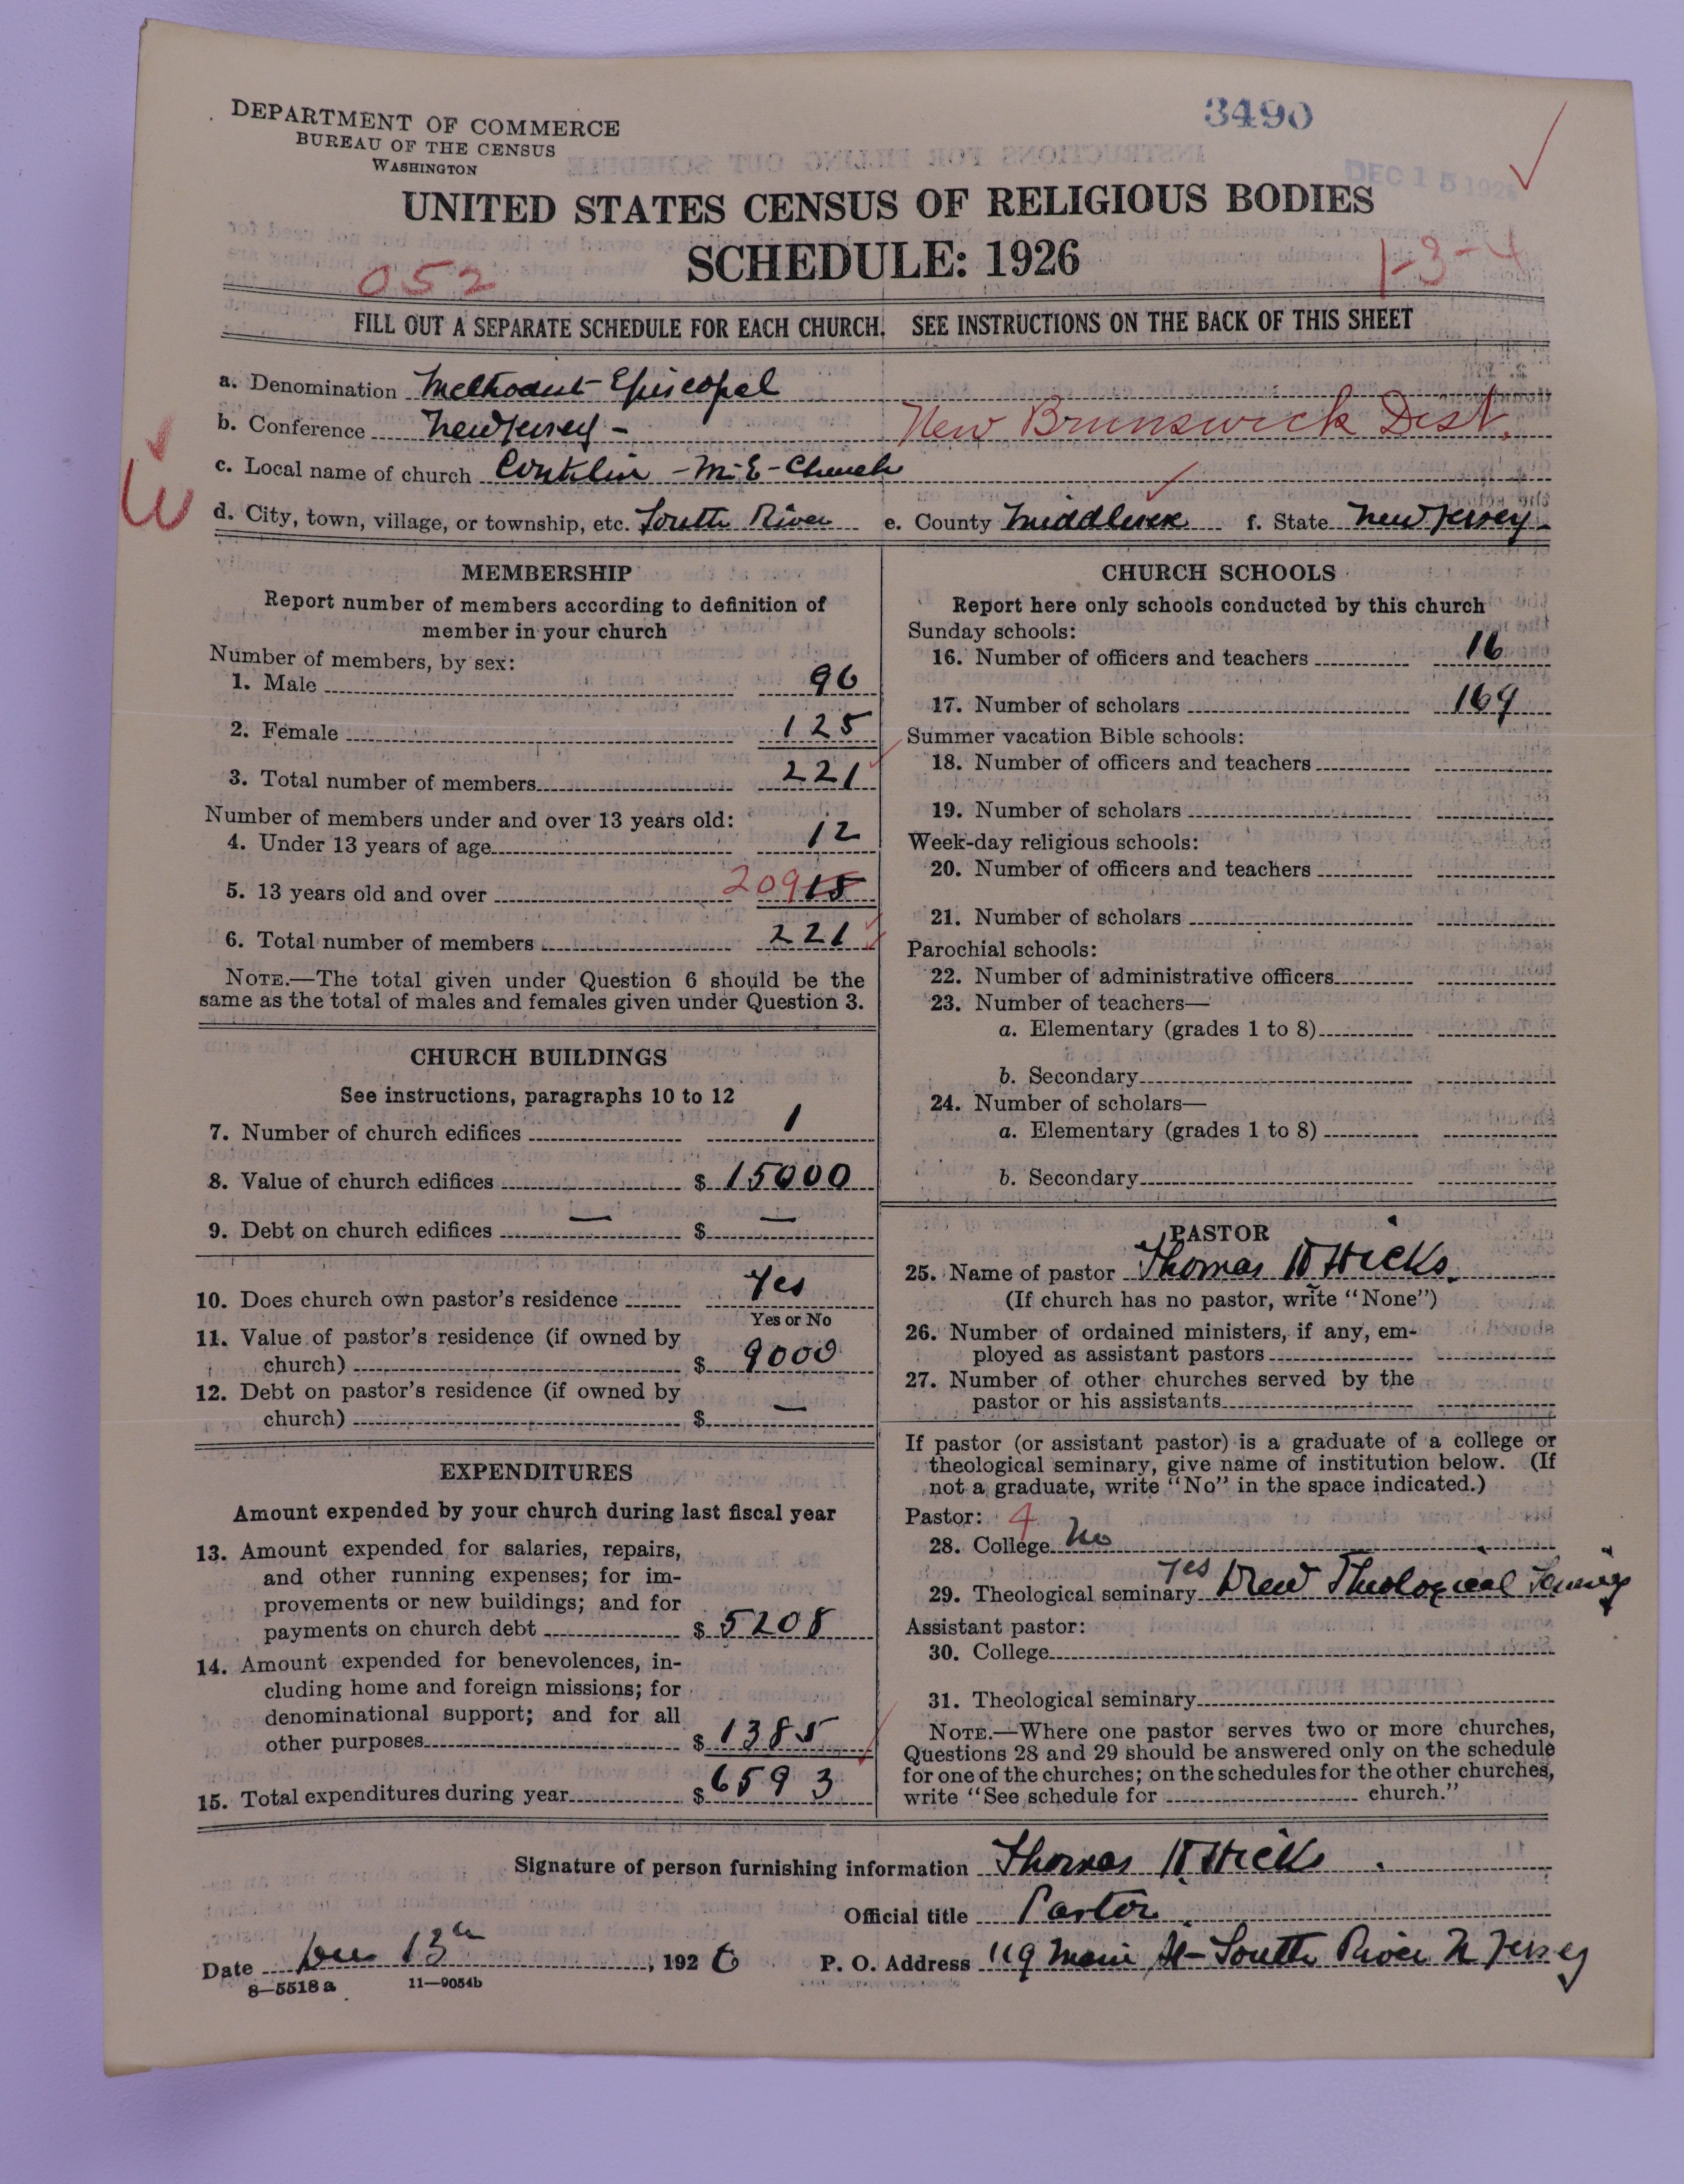 DEPARTMENT OF COMMERCE
BUREAU OF THE CENSUS
WASHINGTON
3490
DEC 15 1926
UNITED STATES CENSUS OF RELIGIOUS BODIES
SCHEDULE: 1926
052
1-3-4
FILL OUT A SEPARATE SCHEDULE FOR EACH CHURCH. SEE INSTRUCTIONS ON THE BACK OF THIS SHEET
a. Denomination Methodist Episcopal
b. Conference New Jersey - New Brunswick Dist.
c. Local name of church Conklin - M-E- Church
d. City, town, village, or township, etc. South River e. County Middlesex f. State New Jersey
MEMBERSHIP
Report number of members according to definition of
member in your church
Number of members, by sex:
1. Male 96
2. Female 125
3. Total number of members 221
Number of members under and over 13 years old:
4. Under 13 years of age 12
5. 13 years old and over 209 15
6. Total number of members 221
NOTE.—The total given under Question 6 should be the
same as the total of males and females given under Question 3.
CHURCH BUILDINGS
See instructions, paragraphs 10 to 12
7. Number of church edifices 1
8. Value of church edifices $ 15000
9. Debt on church edifices — $ —
10. Does church own pastor's residence Yes
Yes or No
11. Value of pastor's residence (if owned by
church) $ 9000
12. Debt on pastor's residence (if owned by
church) $ —
EXPENDITURES
Amount expended by your church during last fiscal year
13. Amount expended for salaries, repairs,
and other running expenses; for im-
provements or new buildings; and for
payments on church debt $ 5208
14. Amount expended for benevolences, in-
cluding home and foreign missions; for
denominational support; and for all
other purposes $ 1385
15. Total expenditures during year $ 6593
CHURCH SCHOOLS
Report here only schools conducted by this church
Sunday schools:
16. Number of officers and teachers 16
17. Number of scholars 169
Summer vacation Bible schools:
18. Number of officers and teachers
19. Number of scholars
Week-day religious schools:
20. Number of officers and teachers
21. Number of scholars
Parochial schools:
22. Number of administrative officers
23. Number of teachers—
a. Elementary (grades 1 to 8)
b. Secondary
24. Number of scholars—
a. Elementary (grades 1 to 8)
b. Secondary
PASTOR
25. Name of pastor Thomas Hicks
(If church has no pastor, write "None")
26. Number of ordained ministers, if any, em-
ployed as assistant pastors
27. Number of other churches served by the
pastor or his assistants
If pastor (or assistant pastor) is a graduate of a college or
theological seminary, give name of institution below. (If
not a graduate, write "No" in the space indicated.)
Pastor: 4
28. College No
29. Theological seminary Yes Drew Theological Seminary
Assistant pastor:
30. College
31. Theological seminary
NOTE.—Where one pastor serves two or more churches,
Questions 28 and 29 should be answered only on the schedule
for one of the churches; on the schedules for the other churches,
write "See schedule for church."
Signature of person furnishing information Thomas Hicks
Official title Pastor
Date Dec 13th, 1926 P. O. Address 119 Main St - South River N Jersey
8—5518 a 11—9054b